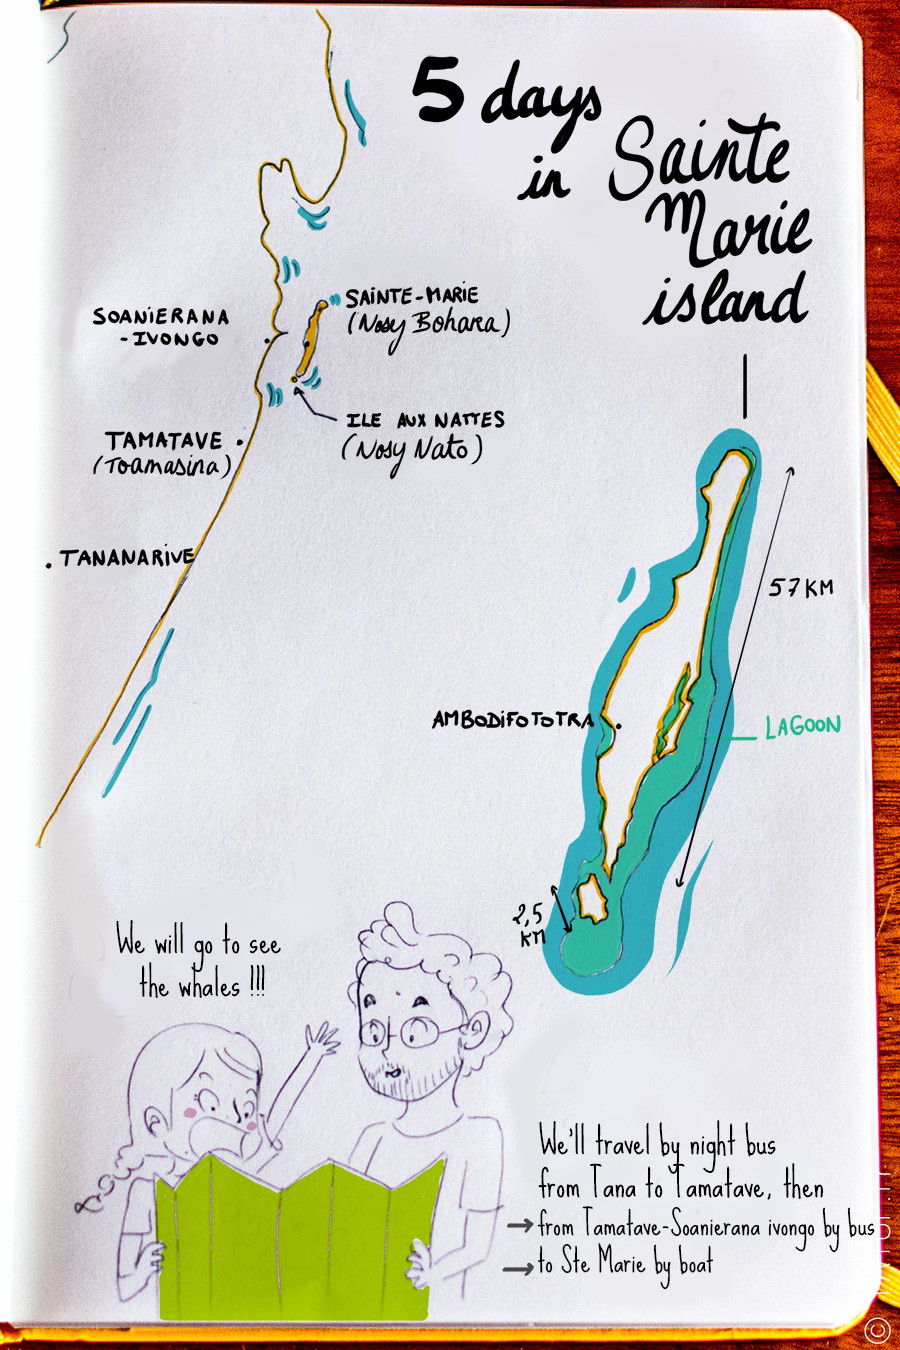 5 days
in Sainte
Marie
island
SOANIERANA
-IVONGO
SAINTE-MARIE
(Nosy Bohara)
ILE AUX NATTES
(Nosy Nato)
TAMATAVE
(Toamasina)
TANANARIVE
57 KM
AMBODIFOTOTRA
LAGOON
2,5
KM
We will go to see
the whales !!!
We'll travel by night bus
from Tana to Tamatave, then
→ from Tamatave-Soanierana ivongo by bus
→ to Ste Marie by boat